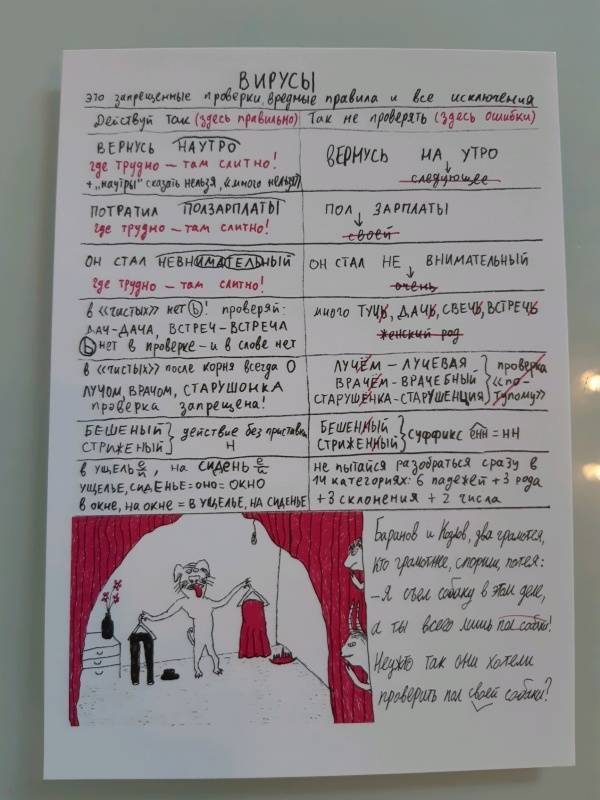 ВИРУСЫ
это запрещенные проверки, вредные правила и все исключения
Действуй так (здесь правильно) Так не проверять (здесь ошибки)
ВЕРНУСЬ НАУТРО
где трудно – там слитно!
+ „наутры" сказать нельзя, «много нельзя»
ВЕРНУСЬ НА УТРО
следующее
ПОТРАТИЛ ПОЛЗАРПЛАТЫ
где трудно – там слитно!
ПОЛ ЗАРПЛАТЫ
своей
ОН СТАЛ НЕВНИМАТЕЛЬНЫЙ
где трудно – там слитно!
ОН СТАЛ НЕ ВНИМАТЕЛЬНЫЙ
очень
в «чистых» нет ь! проверяй:
ДАЧ-ДАЧА, ВСТРЕЧ-ВСТРЕЧА
ь нет в проверке – и в слове нет
много ТУЧЬ, ДАЧЬ, СВЕЧЬ, ВСТРЕЧЬ
женский род
в «чистых» после корня всегда О
ЛУЧОМ, ВРАЧОМ, СТАРУШОНКА
проверка запрещена!
ЛУЧЁМ – ЛУЧЕВАЯ
ВРАЧЁМ – ВРАЧЕБНЫЙ
СТАРУШЁНКА – СТАРУШЕНЦИЯ
проверка
«по-
тупому»
БЕШЕНЫЙ
СТРИЖЕНЫЙ
действие без приставки
Н
БЕШЕННЫЙ
СТРИЖЕННЫЙ
суффикс енн = НН
в ущелье/и, на СИДЕНЬе/и
УЩЕЛЬЕ, СИДЕНЬЕ = ОНО = ОКНО
В ОКНЕ, НА ОКНЕ = В УЩЕЛЬЕ, НА СИДЕНЬЕ
не пытайся разобраться сразу в
14 категориях: 6 падежей + 3 рода
+ 3 склонения + 2 числа
Баранов и Козлов, два грамотея,
кто грамотнее, спорили, потея:
– Я съел собаку в этом деле,
а ты всего лишь полсобаки!
Неужто так они хотели
проверить пол своей собаки?